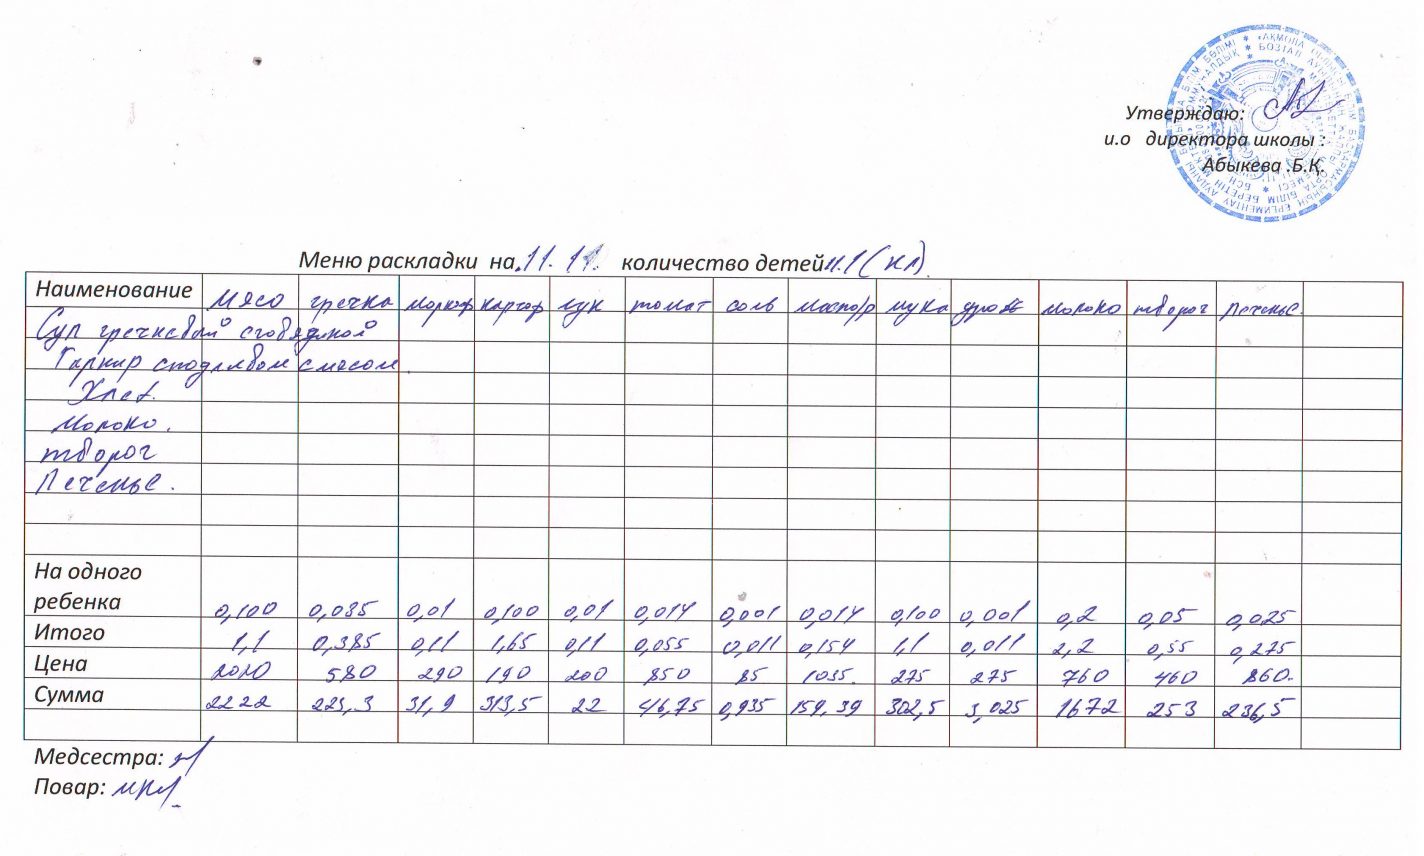 Утверждаю:
и.о директора школы :
Абыкева .Б.Қ.
Меню раскладки на 11. 11. количество детей 11. 1 (кл)
Наименование мясо гречка морков картоф лук томат соль масло/р мука дрож молоко творог Печенье.
Суп гречневый с говядиной
Гарнир с подливом с мясом.
Хлеб.
Молоко.
творог
Печенье.
На одного
ребенка 0,100 0,035 0,01 0,100 0,01 0,014 0,001 0,014 0,100 0,001 0,2 0,05 0,025
Итого 1,1 0,385 0,11 1,65 0,11 0,055 0,011 0,154 1,1 0,011 2,2 0,55 0,275
Цена 2020 580 290 190 200 850 85 1035. 275 275 760 460 860.
Сумма 2222 223,3 31,9 313,5 22 46,75 0,935 159,39 302,5 3,025 1672 253 236,5
Медсестра:
Повар: